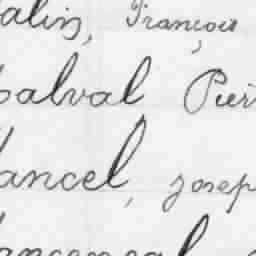 alin, François
alval Pier
ancel, josep